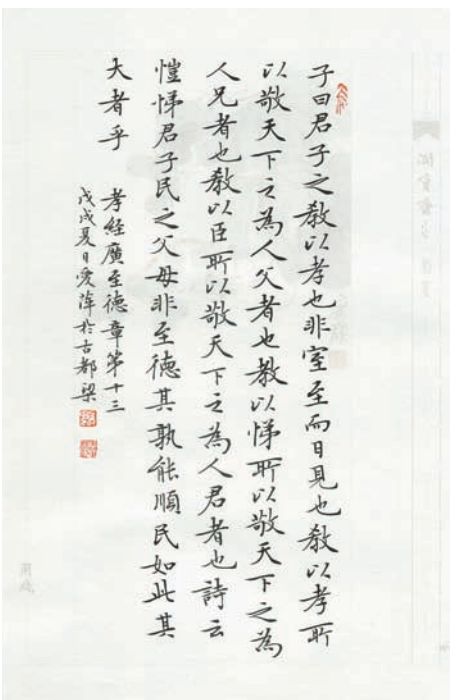 子曰君子之教以孝也非室至而日見也教以孝所
以敬天下之為人父者也教以悌所以敬天下之為
人兄者也教以臣所以敬天下之為人君者也詩云
愷悌君子民之父母非至德其孰能順民如此其
大者乎
孝經廣至德章第十三
戊戌夏日愛萍於古都梁